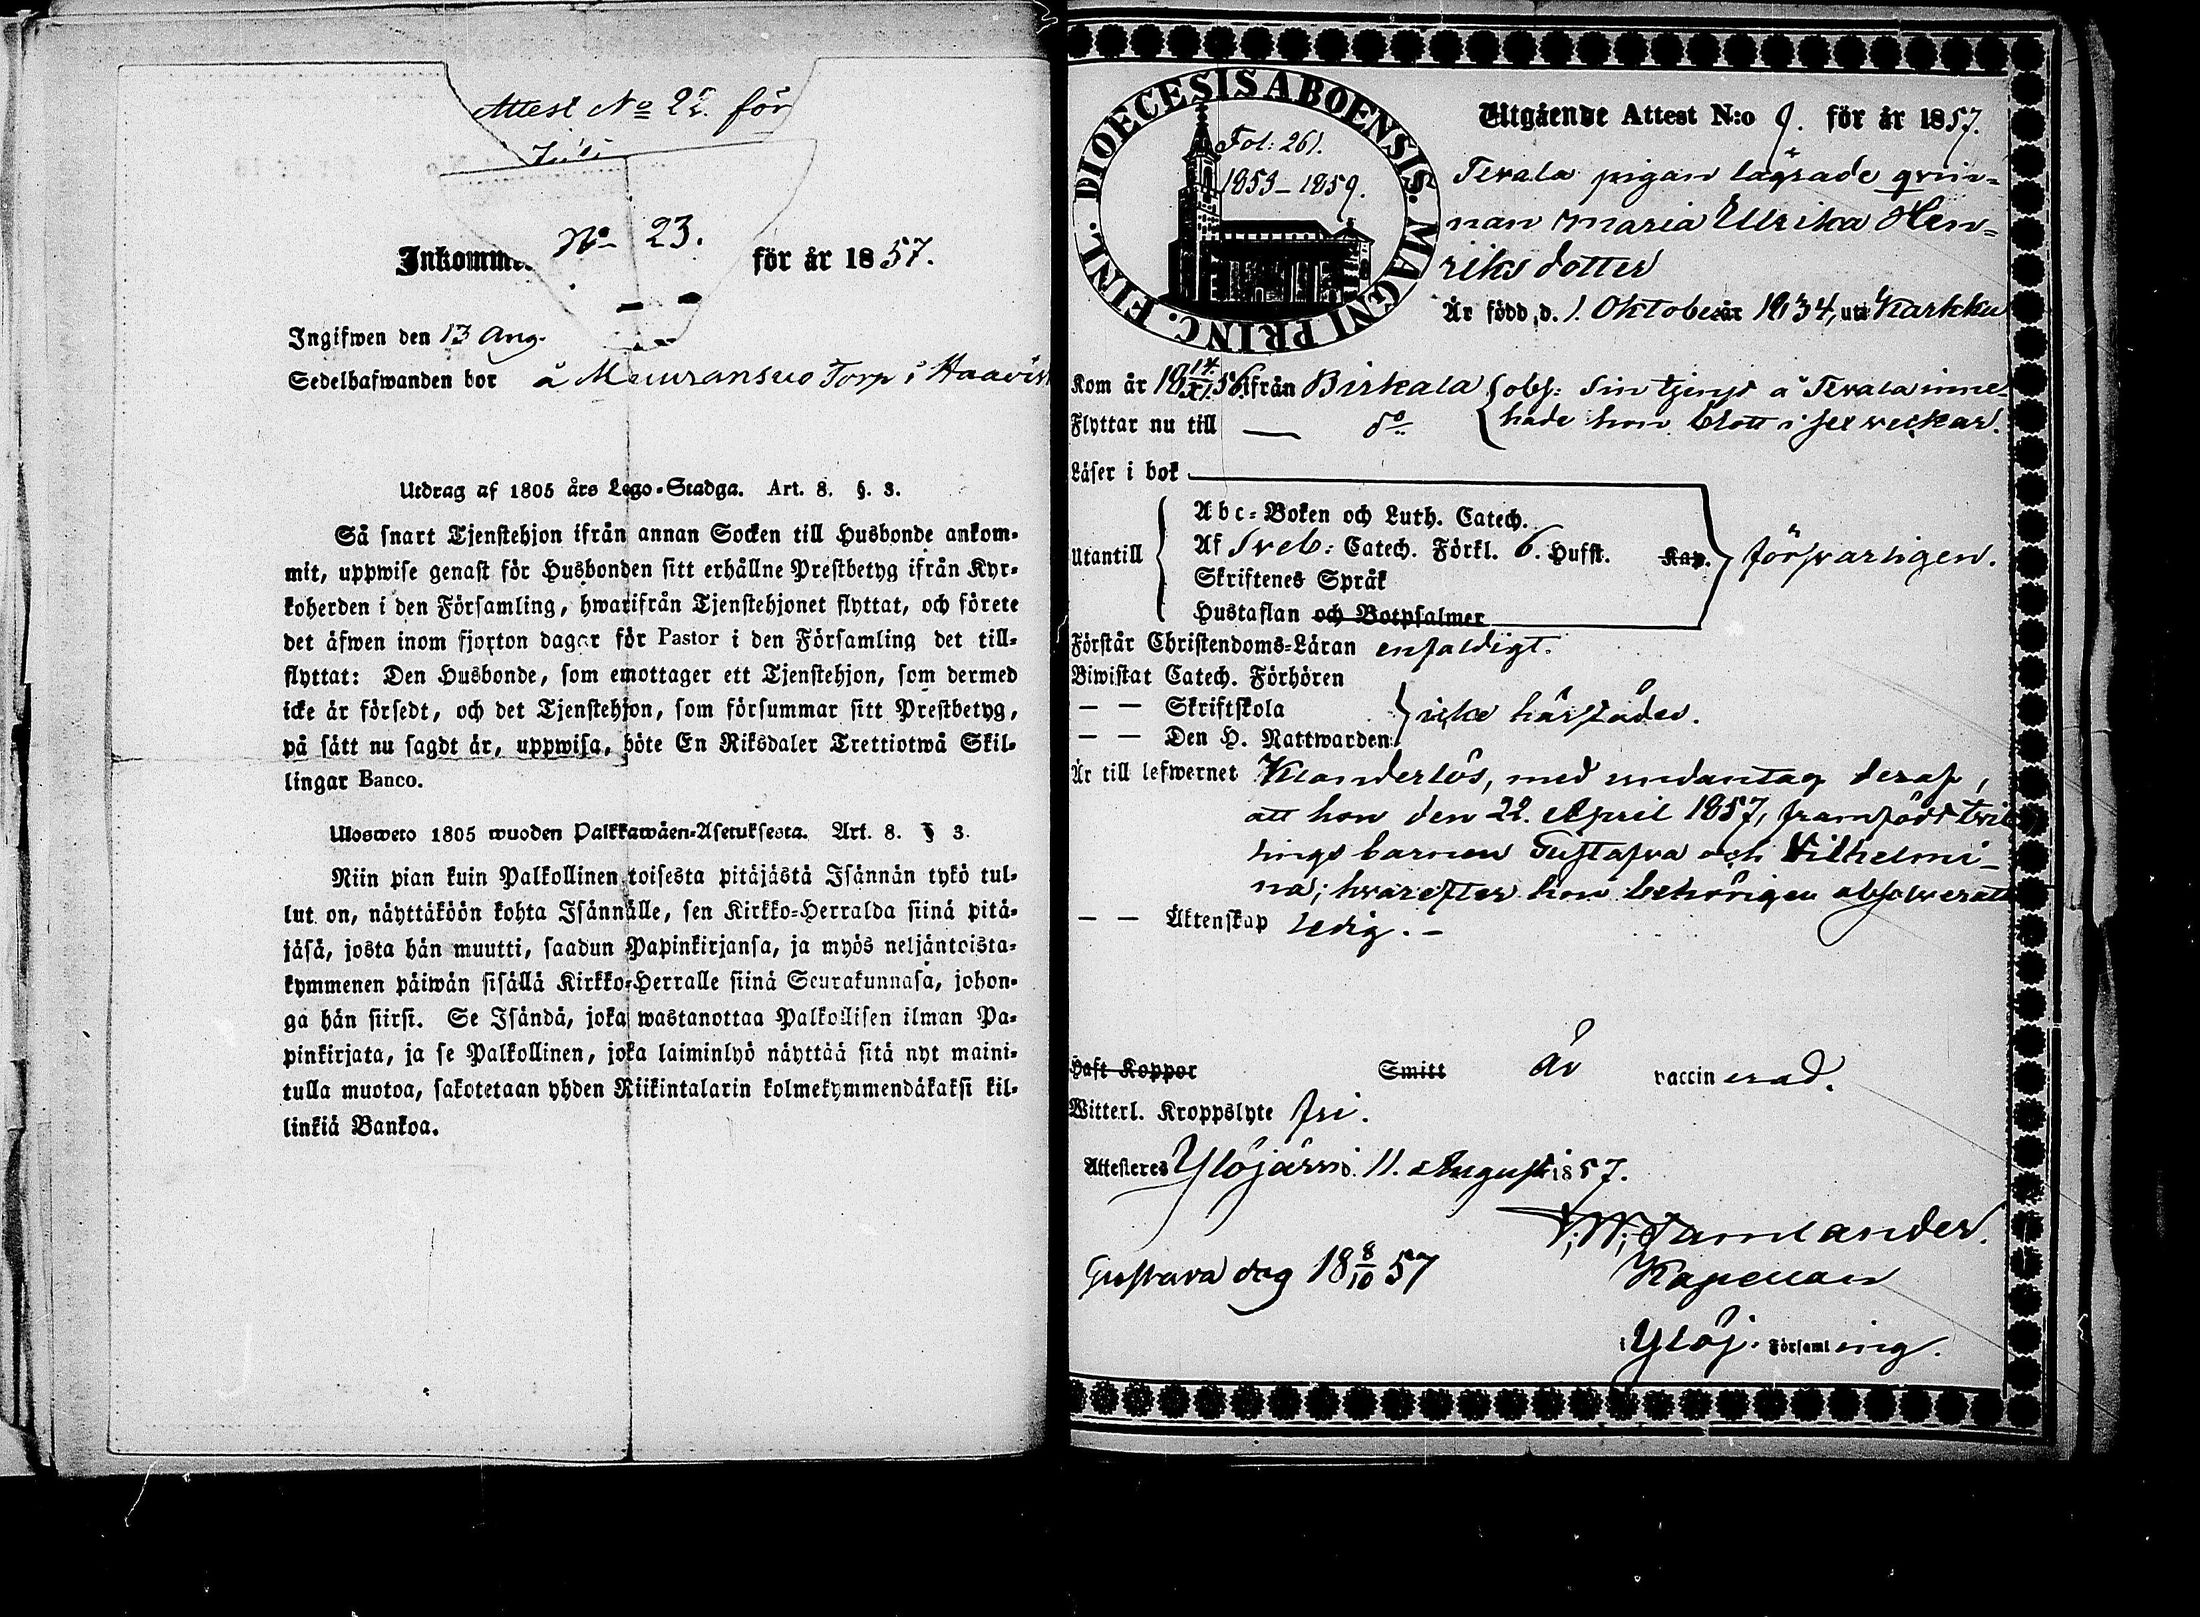 Attest No 22. för
Juli
No 23.
Inkomm för år 1857.
Ingifwen den 13 Aug.
Sedelhafwanden bor å Meuransuo Torp i Haavis
Utdrag af 1805 års Lego-Stadga. Art. 8. §. 3.
Så snart Tjenstehjon ifrån annan Socken till Husbonde ankom-
mit, uppwise genast för Husbonden sitt erhållne Prestbetyg ifrån Kyr-
koherden i den Församling, hwarifrån Tjenstehjonet flyttat, och förete
det äfwen inom fjorton dagar för Pastor i den Församling det till-
flyttat: Den Husbonde, som emottager ett Tjenstehjon, som dermed
icke är försedt, och det Tjenstehjon, som försummar sitt Prestbetyg,
på sätt nu sagdt är, uppwisa, böte En Riksdaler Trettiotwå Skil-
lingar Banco.
Ulosweto 1805 wuoden Palkkawäen-Asetuksesta. Art. 8. § 3.
Niin pian kuin Palkollinen toisesta pitäjästä Isännän tykö tul-
lut on, näyttäköön kohta Isännälle, sen Kirkko-Herralda siinä pitä-
jäsä, josta hän muutti, saadun Papinkirjansa, ja myös neljäntoista-
kymmenen päiwän sisällä Kirkko-Herralle siinä Seurakunnasa, johon-
ga hän siirsi. Se Isändä, joka wastanottaa Palkollisen ilman Pa-
pinkirjata, ja se Palkollinen, joka laiminlyö näyttää sitä nyt maini-
tulla muotoa, sakotetaan yhden Riikintalarin kolmekymmendäkaksi kil-
linkiä Bankoa.
DIOECESIS ABOENSIS. MAGNI PRINC. FINL.
Fol: 261.
1853–1859.
Utgående Attest N:o 9. för år 1857.
Tevala pigan lägrade qvin-
nan Maria Ullrika Hen-
riks dotter
Är född d. 1. Oktober år 1834, uti Karkku
Kom år 18 14/XI. 56. ifrån Birkala { obs: Sin tjenst å Tevala inne-
Flyttar nu till — do { hade hon blott i sex veckor.
Läser i bok
Utantill
Abc-Boken och Luth. Catech.
Af Sveb: Catech. Förkl. 6. Hufst. Kap. } försvarligen.
Skriftenes Språk
Hustaflan och Botpsalmer
Förstår Christendoms-Läran enfaldigt.
Biwistat Catech. Förhören
— — Skriftskola } icke härstädes.
— — Den H. Nattwarden
Är till lefwernet Klanderlös, med undantag deraf,
att hon den 22. April 1857, framfödt tvil
lings barnen Gustafva och Vilhelmi-
na; hvarefter hon behörigen absolverats
— — Äktenskap ledig. –
Haft Koppor Smitt är vaccinerad.
Witterl. Kroppslyte fri.
Attesteres Ylöjärvi d. 11. August 1857.
Kapellan
Gustava dog 18 8/10 57
i Ylöj. Församling.